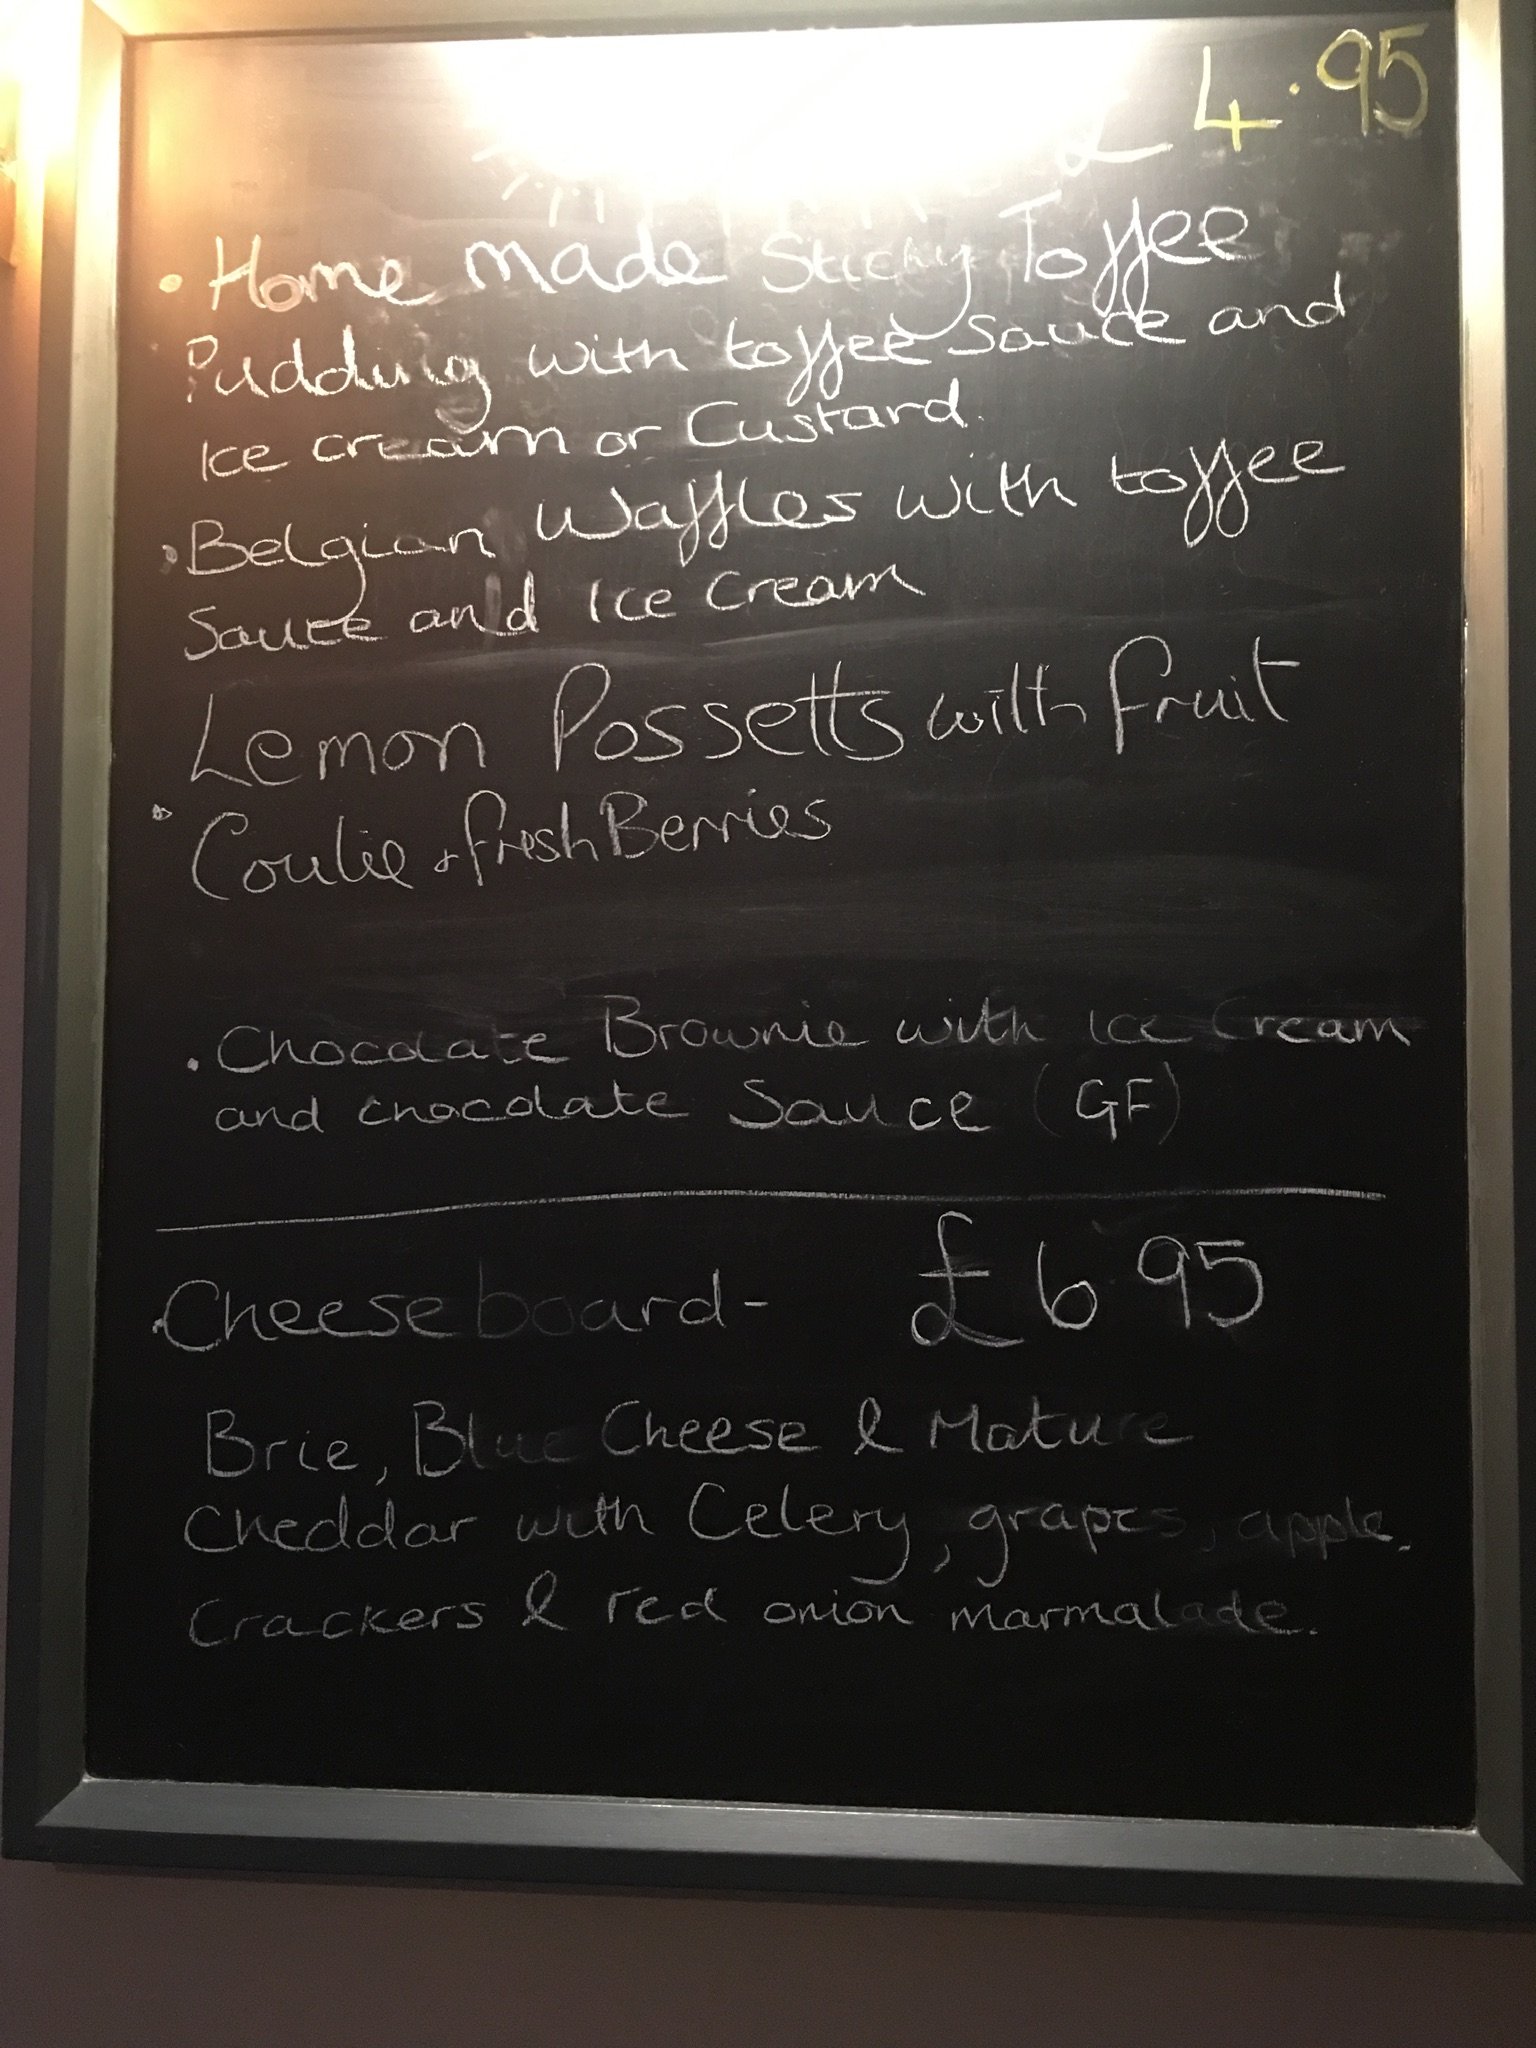 £ 4.95
• Home made Sticky Toffee
Pudding with toffee Sauce and
Ice cream or Custard.
• Belgian Waffles with toffee
Sauce and Ice Cream
Lemon Possetts with fruit
• Coulie & fresh Berries
• Chocolate Brownie with Ice Cream
and chocolate Sauce (GF)
• Cheeseboard - £6.95
Brie, Blue Cheese & Mature
Cheddar with Celery, grapes, apple,
Crackers & red onion marmalade.